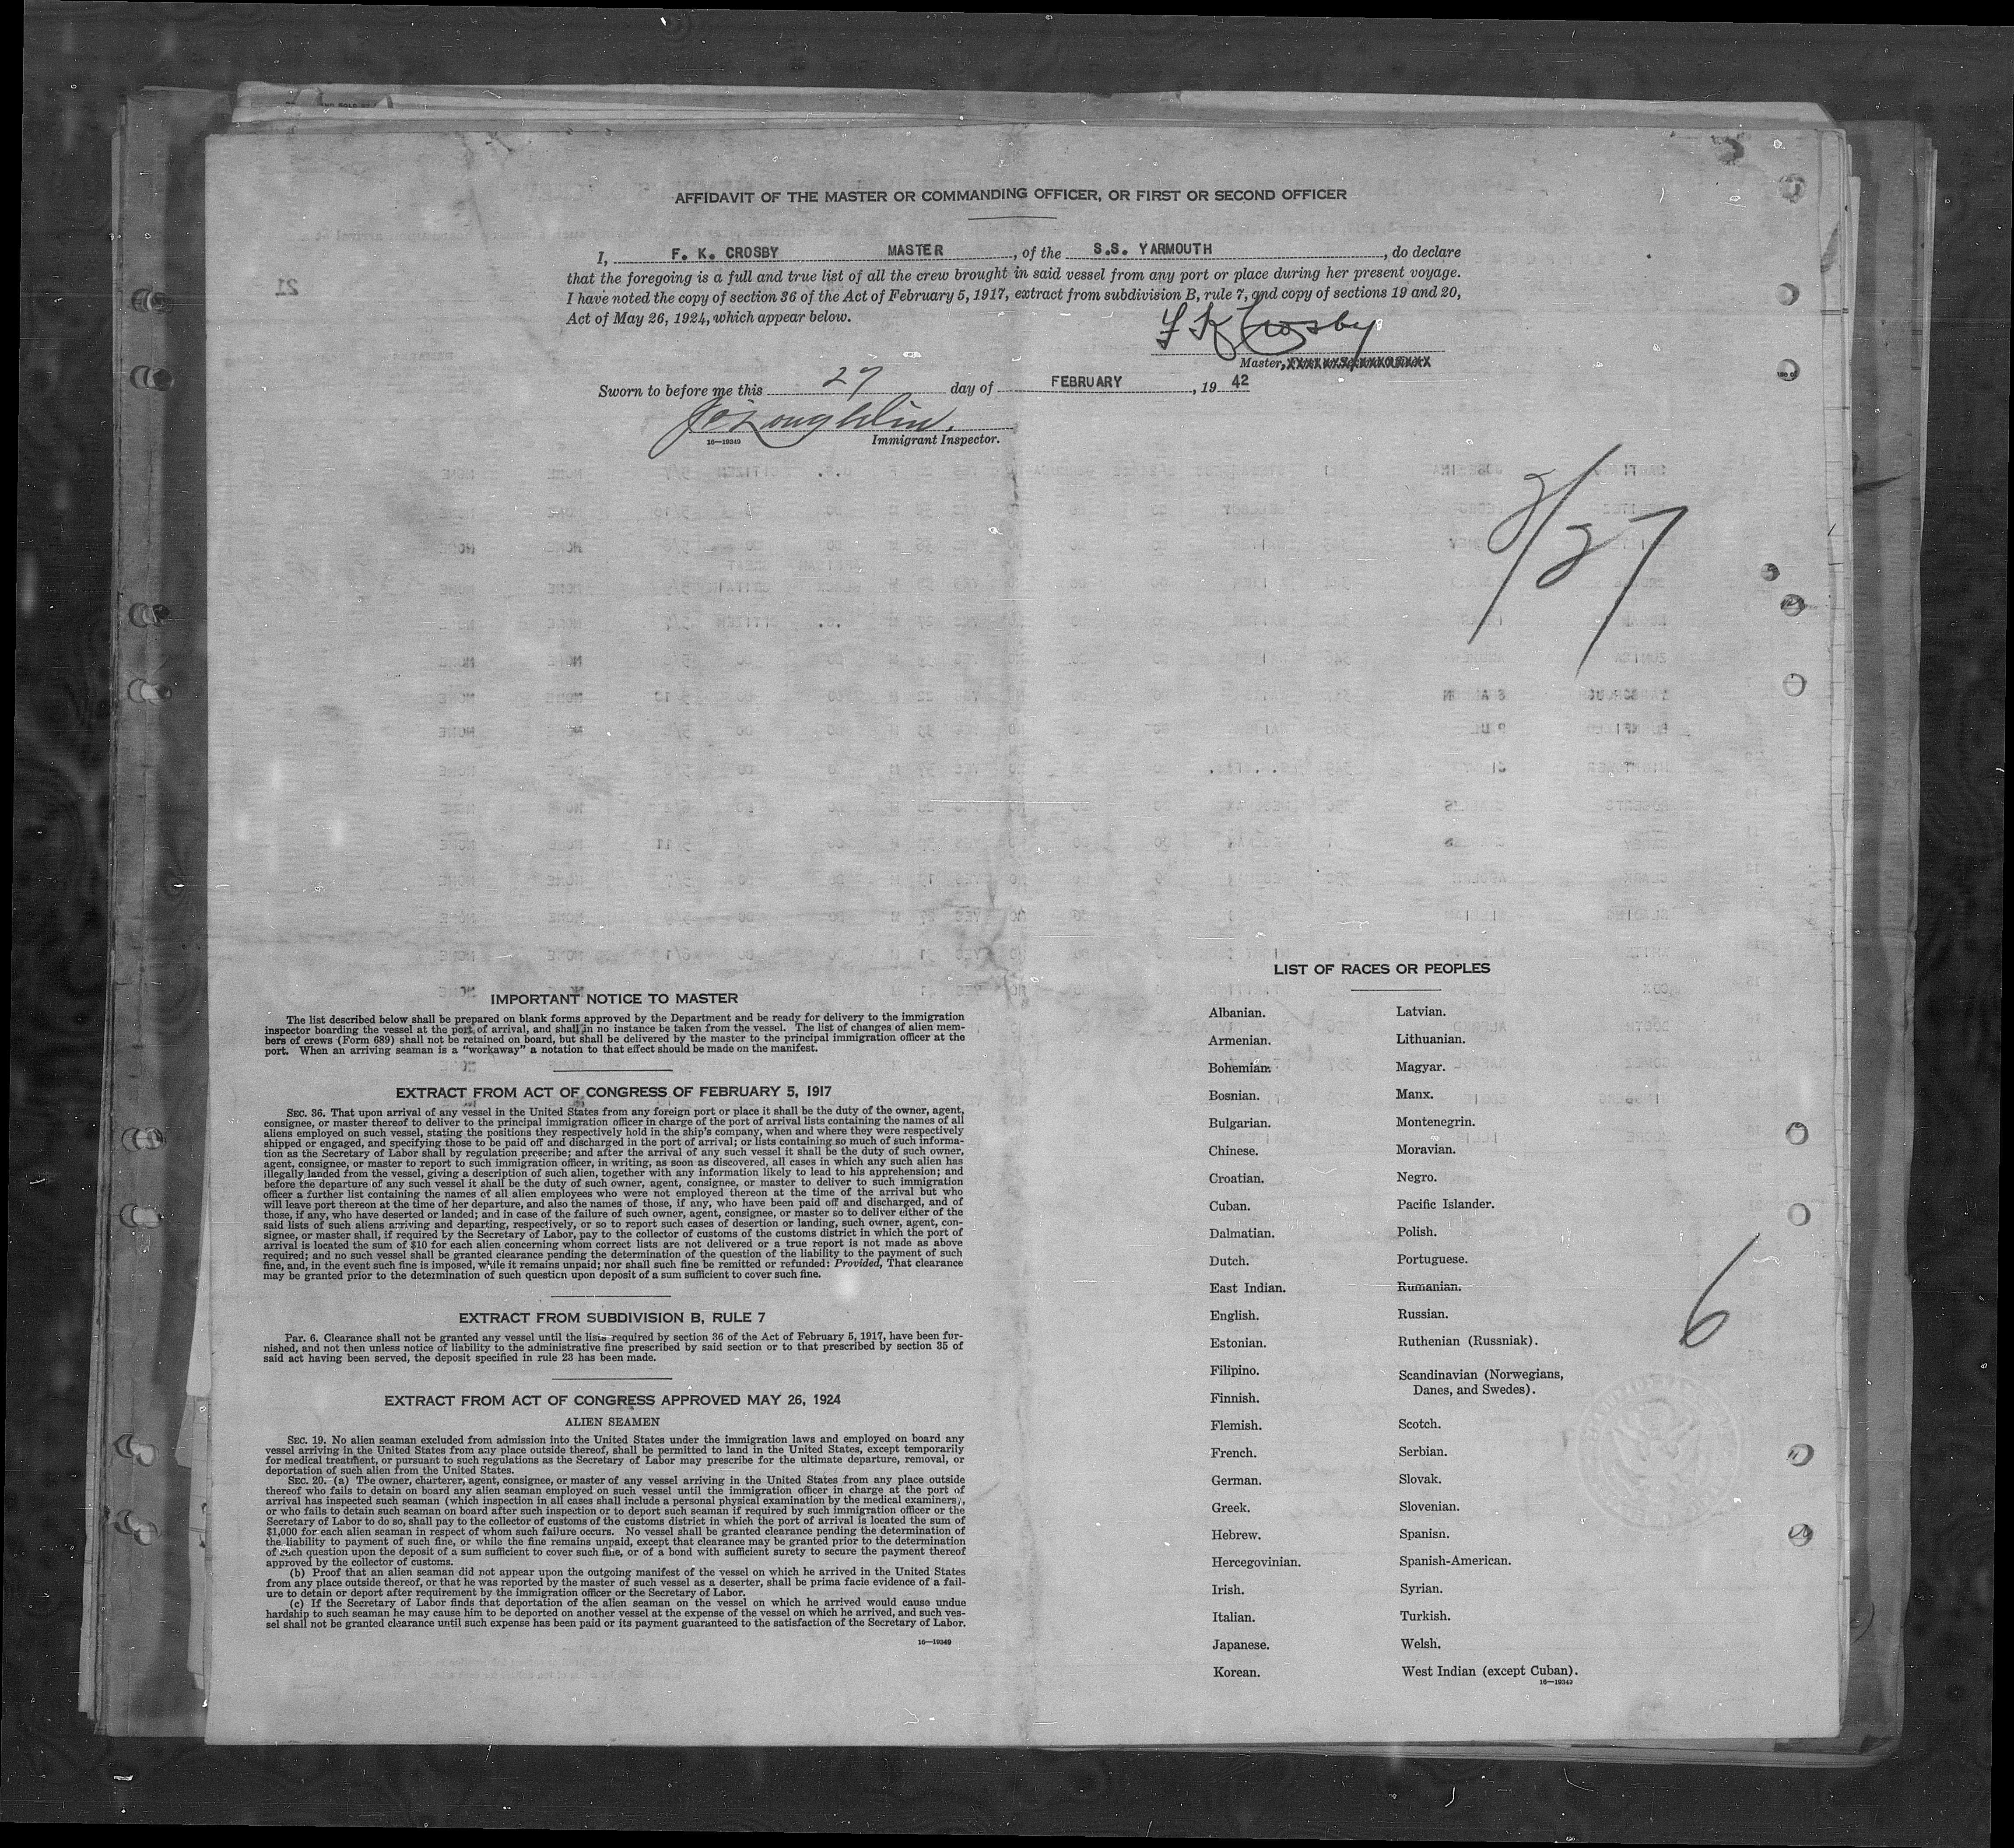 AFFIDAVIT OF THE MASTER OR COMMANDING OFFICER, OR FIRST OR SECOND OFFICER
I, F. K. CROSBY MASTER, of the S.S. YARMOUTH, do declare
that the foregoing is a full and true list of all the crew brought in said vessel from any port or place during her present voyage.
I have noted the copy of section 36 of the Act of February 5, 1917, extract from subdivision B, rule 7, and copy of sections 19 and 20,
Act of May 26, 1924, which appear below.
F K Crosby
Master,
Sworn to before me this 27 day of FEBRUARY, 19 42
16—19349 Immigrant Inspector.
21
2/27
IMPORTANT NOTICE TO MASTER
The list described below shall be prepared on blank forms approved by the Department and be ready for delivery to the immigration
inspector boarding the vessel at the port of arrival, and shall in no instance be taken from the vessel. The list of changes of alien mem-
bers of crews (Form 689) shall not be retained on board, but shall be delivered by the master to the principal immigration officer at the
port. When an arriving seaman is a "workaway" a notation to that effect should be made on the manifest.
EXTRACT FROM ACT OF CONGRESS OF FEBRUARY 5, 1917
SEC. 36. That upon arrival of any vessel in the United States from any foreign port or place it shall be the duty of the owner, agent,
consignee, or master thereof to deliver to the principal immigration officer in charge of the port of arrival lists containing the names of all
aliens employed on such vessel, stating the positions they respectively hold in the ship's company, when and where they were respectively
shipped or engaged, and specifying those to be paid off and discharged in the port of arrival; or lists containing so much of such informa-
tion as the Secretary of Labor shall by regulation prescribe; and after the arrival of any such vessel it shall be the duty of such owner,
agent, consignee, or master to report to such immigration officer, in writing, as soon as discovered, all cases in which any such alien has
illegally landed from the vessel, giving a description of such alien, together with any information likely to lead to his apprehension; and
before the departure of any such vessel it shall be the duty of such owner, agent, consignee, or master to deliver to such immigration
officer a further list containing the names of all alien employees who were not employed thereon at the time of the arrival but who
will leave port thereon at the time of her departure, and also the names of those, if any, who have been paid off and discharged, and of
those, if any, who have deserted or landed; and in case of the failure of such owner, agent, consignee, or master so to deliver either of the
said lists of such aliens arriving and departing, respectively, or so to report such cases of desertion or landing, such owner, agent, con-
signee, or master shall, if required by the Secretary of Labor, pay to the collector of customs of the customs district in which the port of
arrival is located the sum of $10 for each alien concerning whom correct lists are not delivered or a true report is not made as above
required; and no such vessel shall be granted clearance pending the determination of the question of the liability to the payment of such
fine, and, in the event such fine is imposed, while it remains unpaid; nor shall such fine be remitted or refunded: Provided, That clearance
may be granted prior to the determination of such question upon deposit of a sum sufficient to cover such fine.
EXTRACT FROM SUBDIVISION B, RULE 7
Par. 6. Clearance shall not be granted any vessel until the lists required by section 36 of the Act of February 5, 1917, have been fur-
nished, and not then unless notice of liability to the administrative fine prescribed by said section or to that prescribed by section 35 of
said act having been served, the deposit specified in rule 23 has been made.
EXTRACT FROM ACT OF CONGRESS APPROVED MAY 26, 1924
ALIEN SEAMEN
SEC. 19. No alien seaman excluded from admission into the United States under the immigration laws and employed on board any
vessel arriving in the United States from any place outside thereof, shall be permitted to land in the United States, except temporarily
for medical treatment, or pursuant to such regulations as the Secretary of Labor may prescribe for the ultimate departure, removal, or
deportation of such alien from the United States.
SEC. 20. (a) The owner, charterer, agent, consignee, or master of any vessel arriving in the United States from any place outside
thereof who fails to detain on board any alien seaman employed on such vessel until the immigration officer in charge at the port of
arrival has inspected such seaman (which inspection in all cases shall include a personal physical examination by the medical examiners),
or who fails to detain such seaman on board after such inspection or to deport such seaman if required by such immigration officer or the
Secretary of Labor to do so, shall pay to the collector of customs of the customs district in which the port of arrival is located the sum of
$1,000 for each alien seaman in respect of whom such failure occurs. No vessel shall be granted clearance pending the determination of
the liability to payment of such fine, or while the fine remains unpaid, except that clearance may be granted prior to the determination
of such question upon the deposit of a sum sufficient to cover such fine, or of a bond with sufficient surety to secure the payment thereof
approved by the collector of customs.
(b) Proof that an alien seaman did not appear upon the outgoing manifest of the vessel on which he arrived in the United States
from any place outside thereof, or that he was reported by the master of such vessel as a deserter, shall be prima facie evidence of a fail-
ure to detain or deport after requirement by the immigration officer or the Secretary of Labor.
(c) If the Secretary of Labor finds that deportation of the alien seaman on the vessel on which he arrived would cause undue
hardship to such seaman he may cause him to be deported on another vessel at the expense of the vessel on which he arrived, and such ves-
sel shall not be granted clearance until such expense has been paid or its payment guaranteed to the satisfaction of the Secretary of Labor.
16—19349
LIST OF RACES OR PEOPLES
Albanian. Latvian.
Armenian. Lithuanian.
Bohemian. Magyar.
Bosnian. Manx.
Bulgarian. Montenegrin.
Chinese. Moravian.
Croatian. Negro.
Cuban. Pacific Islander.
Dalmatian. Polish.
Dutch. Portuguese.
East Indian. Rumanian.
English. Russian.
Estonian. Ruthenian (Russniak).
Filipino. Scandinavian (Norwegians,
Danes, and Swedes).
Finnish.
Flemish. Scotch.
French. Serbian.
German. Slovak.
Greek. Slovenian.
Hebrew. Spanish.
Hercegovinian. Spanish-American.
Irish. Syrian.
Italian. Turkish.
Japanese. Welsh.
Korean. West Indian (except Cuban).
16—19349
6